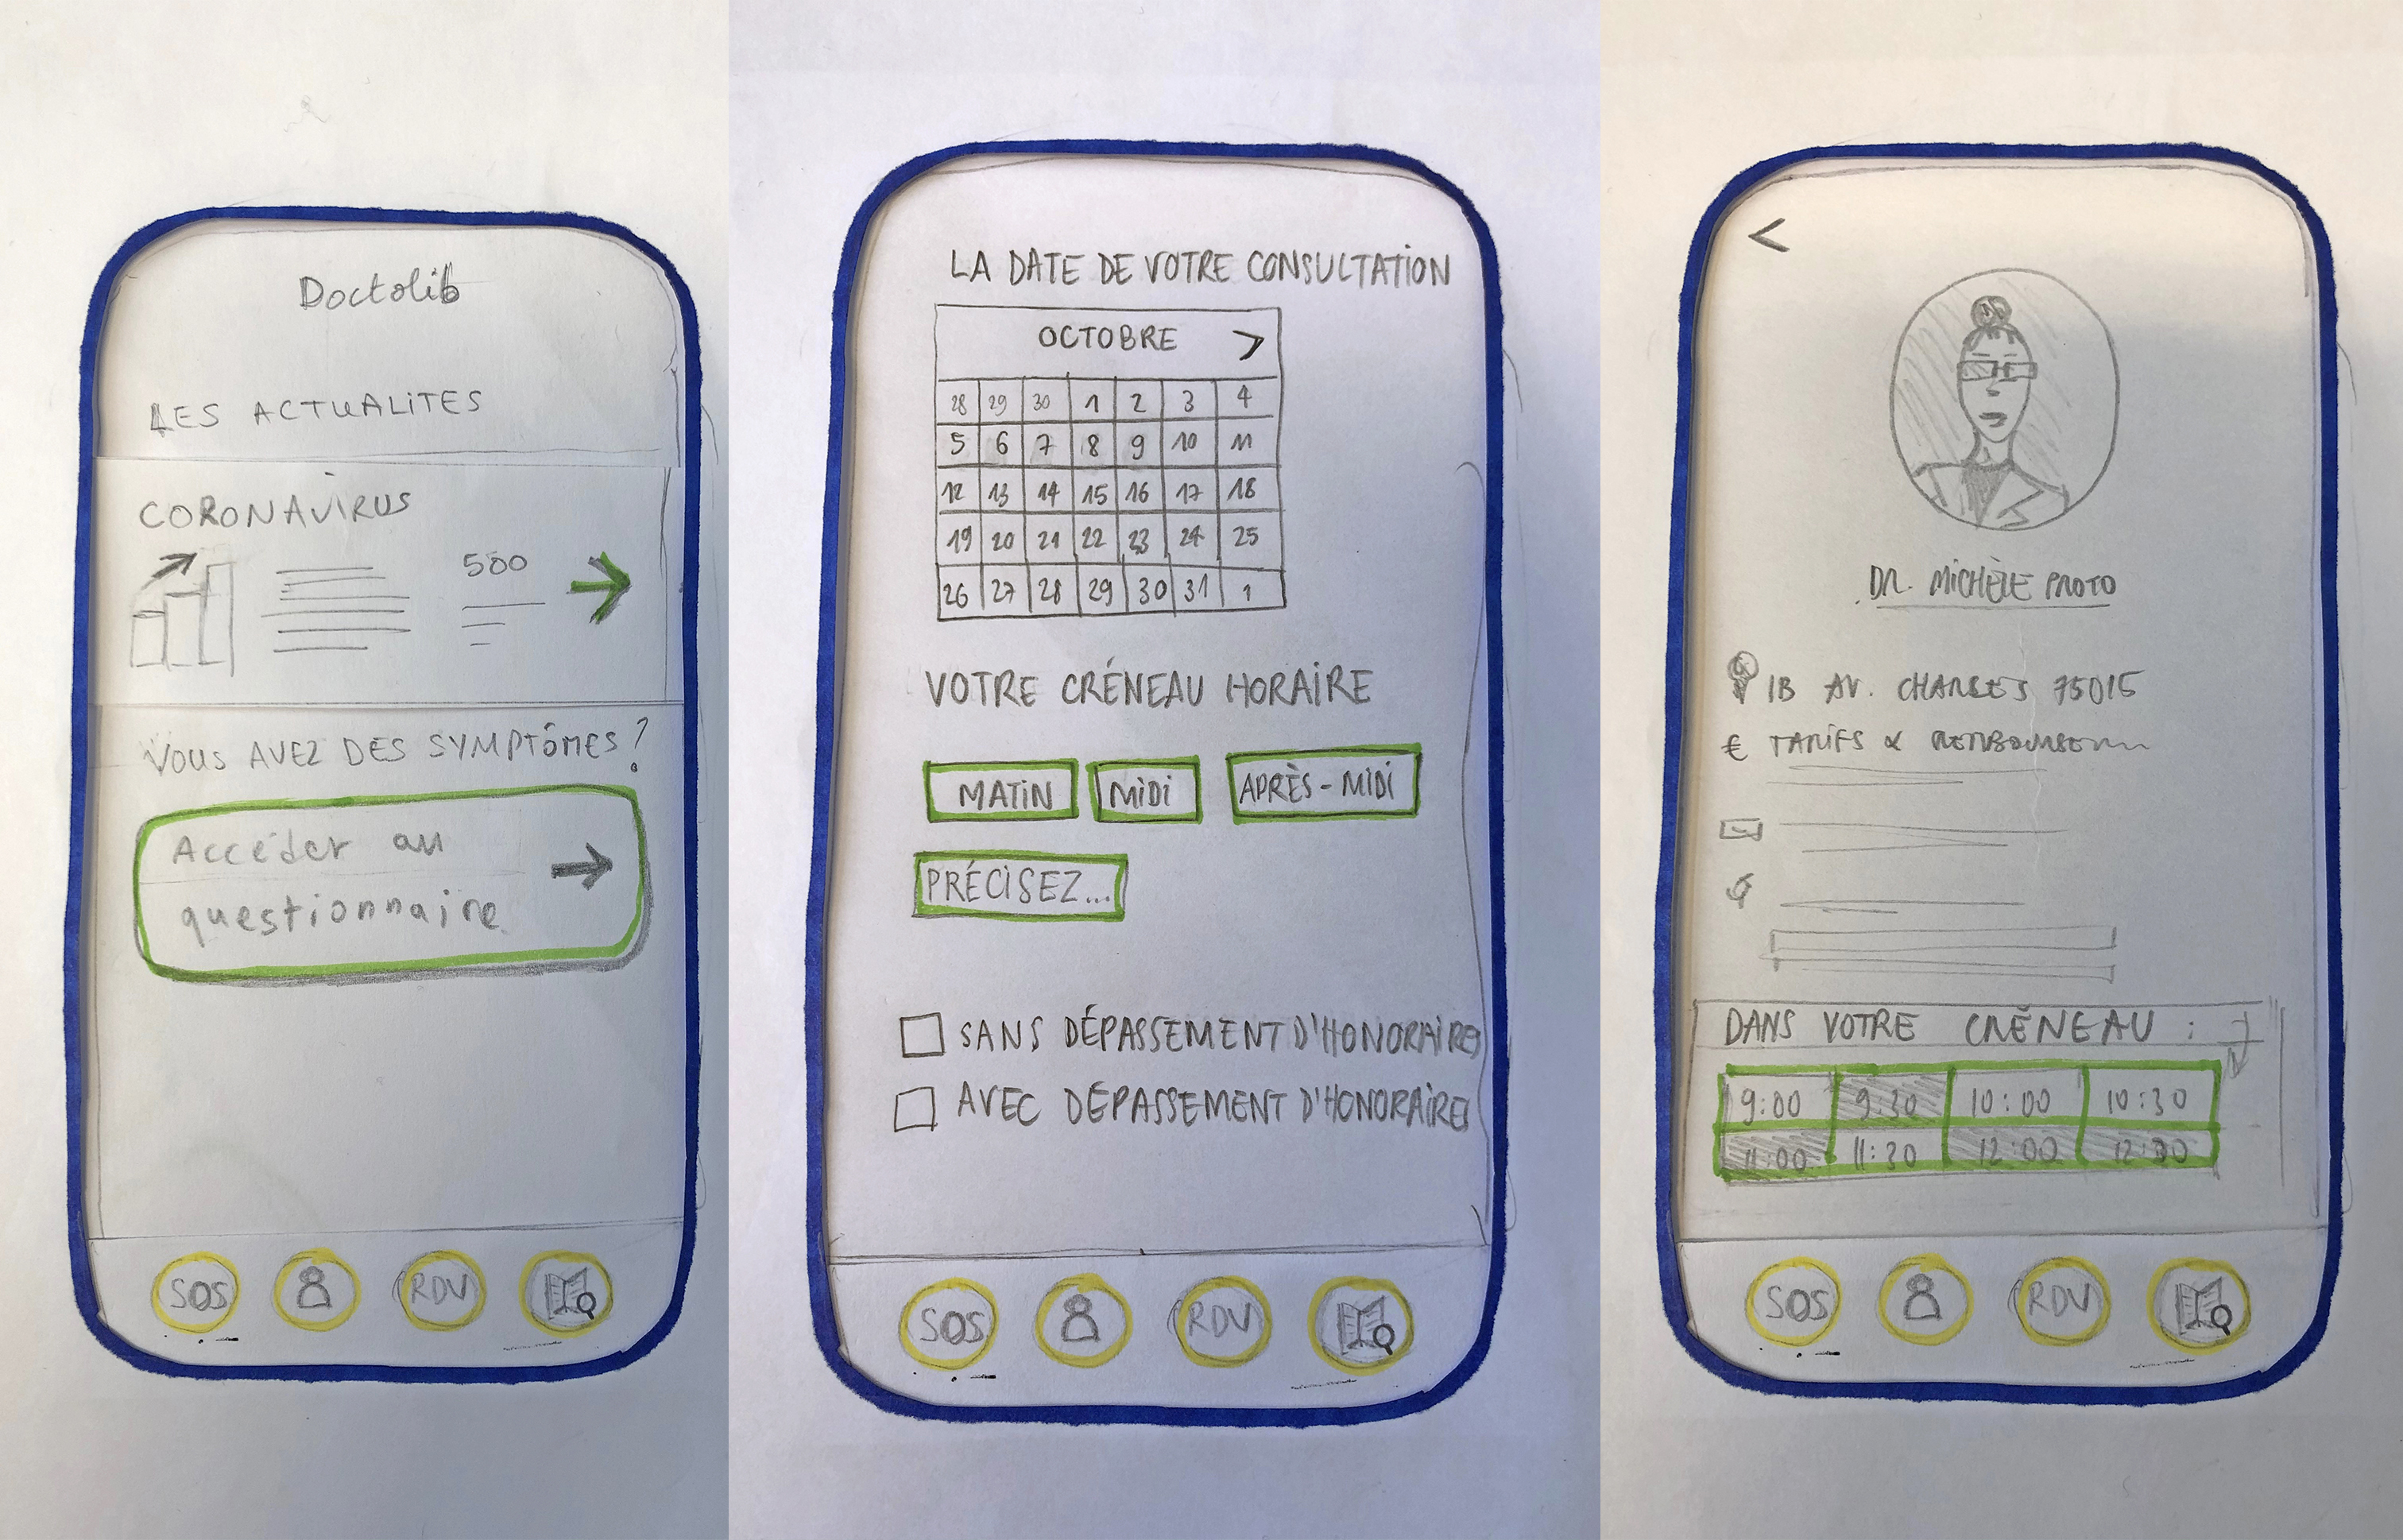 Doctolib
LES ACTUALITES
CORONAVIRUS
500
VOUS AVEZ DES SYMPTÔMES ?
Accéder au
questionnaire
SOS
RDV
LA DATE DE VOTRE CONSULTATION
OCTOBRE >
28 29 30 1 2 3 4
5 6 7 8 9 10 11
12 13 14 15 16 17 18
19 20 21 22 23 24 25
26 27 28 29 30 31 1
VOTRE CRÉNEAU HORAIRE
MATIN MIDI APRÈS-MIDI
PRÉCISEZ...
SANS DÉPASSEMENT D'HONORAIRES
AVEC DÉPASSEMENT D'HONORAIRES
SOS
RDV
<
DR. MICHÈLE PROTO
AV. CHARLES 75015
€ TARIFS &
DANS VOTRE CRÉNEAU :
9:00 9:30 10:00 10:30
11:00 11:30 12:00 12:30
SOS
RDV